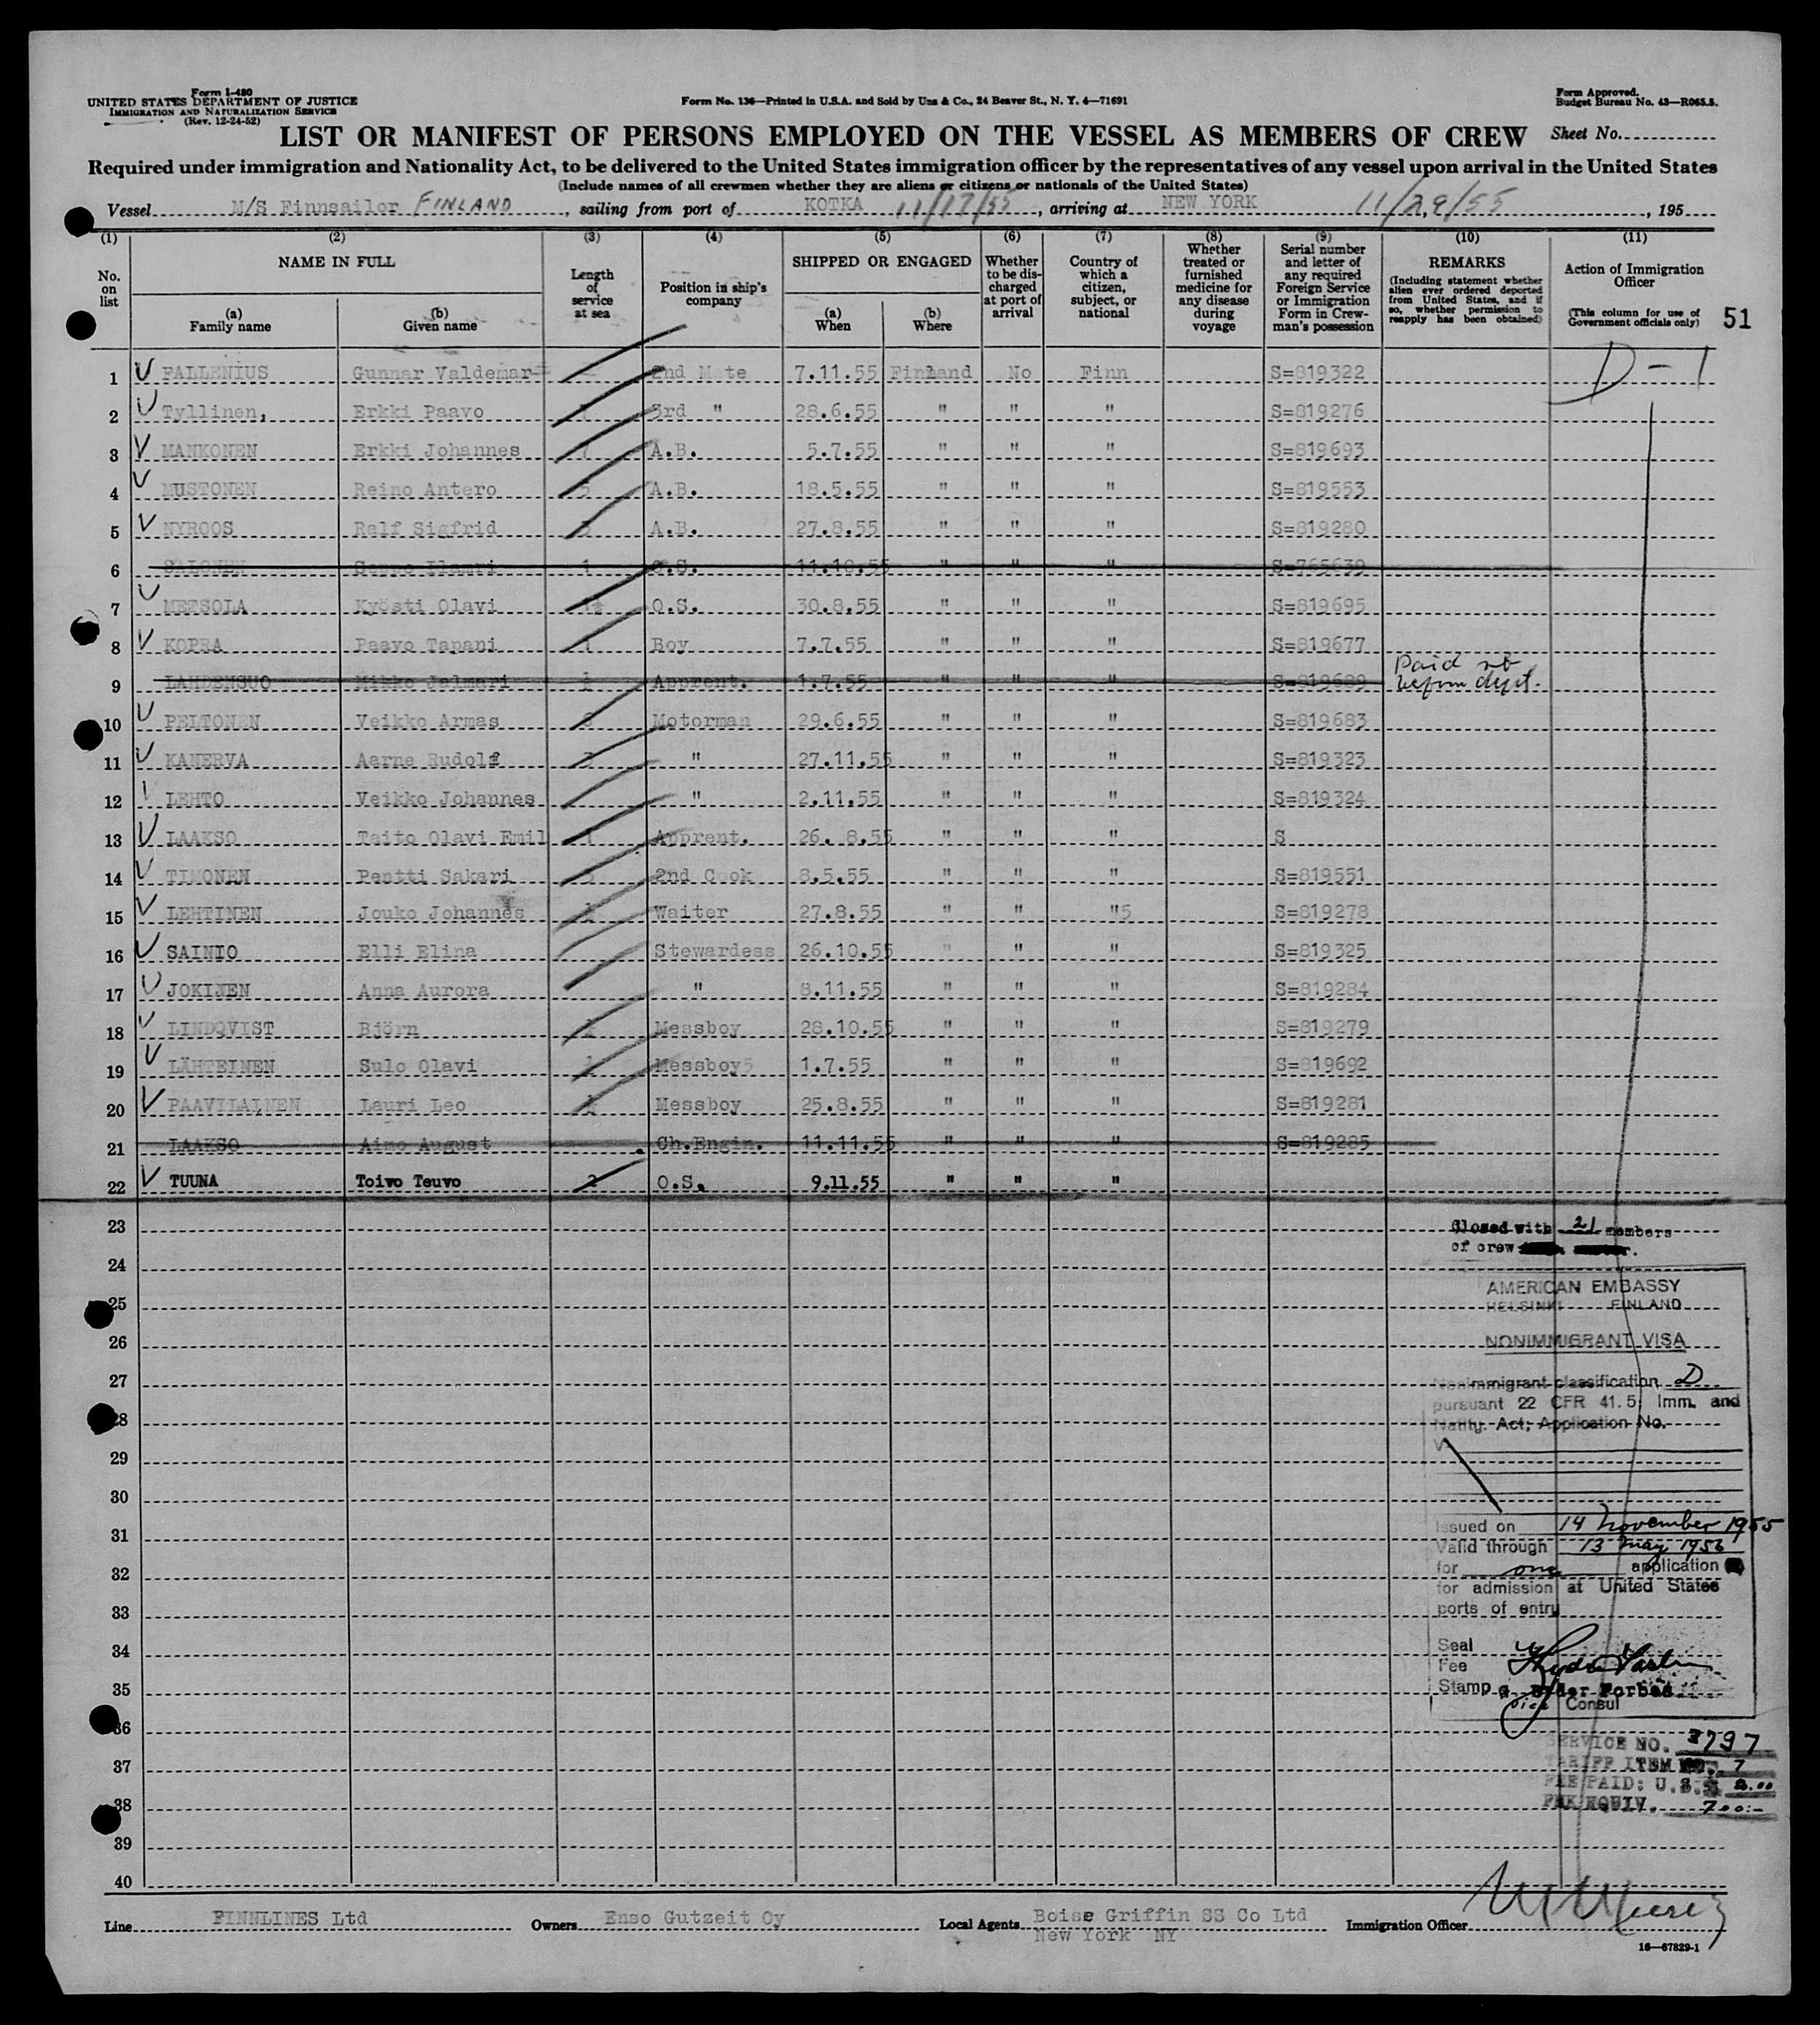 Form I-480
UNITED STATES DEPARTMENT OF JUSTICE
IMMIGRATION AND NATURALIZATION SERVICE
(Rev. 12-24-52)
Form No. 136—Printed in U.S.A. and Sold by Unz & Co., 24 Beaver St., N. Y. 4—71691
Form Approved.
Budget Bureau No. 43—R065.5.
LIST OR MANIFEST OF PERSONS EMPLOYED ON THE VESSEL AS MEMBERS OF CREW Sheet No.
Required under immigration and Nationality Act, to be delivered to the United States immigration officer by the representatives of any vessel upon arrival in the United States
(Include names of all crewmen whether they are aliens or citizens or nationals of the United States)
Vessel M/S Finnsailor FINLAND, sailing from port of KOTKA 11/17/55, arriving at NEW YORK 11/29/55, 195
(1) No. on list
(2) NAME IN FULL (a) Family name (b) Given name
(3) Length of service at sea
(4) Position in ship's company
(5) SHIPPED OR ENGAGED (a) When (b) Where
(6) Whether to be discharged at port of arrival
(7) Country of which a citizen, subject, or national
(8) Whether treated or furnished medicine for any disease during voyage
(9) Serial number and letter of any required Foreign Service or Immigration Form in Crewman's possession
(10) REMARKS (Including statement whether alien ever ordered deported from United States, and if so, whether permission to reapply has been obtained)
(11) Action of Immigration Officer (This column for use of Government officials only)
51
1 V FALLENIUS Gunnar Valdemar 2nd Mate 7.11.55 Finland No Finn S=819322 D-1
2 V Tyllinen, Erkki Paavo 3rd " 28.6.55 " " " S=819276
3 V MANKONEN Erkki Johannes 7 A.B. 5.7.55 " " " S=819693
4 V MUSTONEN Reino Antero 5 A.B. 18.5.55 " " " S=819553
5 V NYROOS Ralf Sigfrid 3 A.B. 27.8.55 " " " S=819280
6 SALONEN Seppo Ilmari 1 O.S. 11.10.55 " " " S=765639
7 V METSOLA Kyösti Olavi 1½ O.S. 30.8.55 " " " S=819695
8 V KOPRA Paavo Tapani 1 Boy 7.7.55 " " " S=819677
9 LAHDENSUO Mikko Jalmari ½ Apprent. 1.7.55 " " " S=819689 Paid off before dept.
10 V PELTONEN Veikko Armas Motorman 29.6.55 " " " S=819683
11 V KANERVA Aarne Rudolf 3 " 27.11.55 " " " S=819323
12 V LEHTO Veikko Johannes " 2.11.55 " " " S=819324
13 V LAAKSO Taito Olavi Emil 1 Apprent. 26. 8.55 " " " S
14 V TIMONEN Pentti Sakari 2nd Cook 8.5.55 " " " S=819551
15 V LEHTINEN Jouko Johannes Waiter 27.8.55 " " "5 S=819278
16 V SAINIO Elli Elina Stewardess 26.10.55 " " " S=819325
17 V JOKINEN Anna Aurora " 8.11.55 " " " S=819284
18 V LINDQVIST Björn Messboy 28.10.55 " " " S=819279
19 V LÄHTEINEN Sulo Olavi Messboy5 1.7.55 " " " S=819692
20 V PAAVILAINEN Lauri Leo Messboy 25.8.55 " " " S=819281
21 LAAKSO Aimo August Ch.Engin. 11.11.55 " " " S=819285
22 V TUUNA Toivo Teuvo 2 O.S. 9.11.55 " " "
23
Closed with 21 members
of crew
24
AMERICAN EMBASSY
25
HELSINKI FINLAND
26
NONIMMIGRANT VISA
27
Nonimmigrant classification D
pursuant 22 CFR 41.5; Imm. and
28
Natlty. Act; Application No.
V
29
30
31
Issued on 14 November 1955
Valid through 13 May 1956
32
for one application
for admission at United States
33
ports of entry
34
Seal
Fee
35
Stamp
Ryder Forbes
Vice Consul
36
SERVICE NO. 3797
37
TARIFF ITEM NO. 7
FEE PAID: U.S. $ 2.00
38
FMK EQUIV. 700:-
39
40
Line FINNLINES Ltd Owners Enso Gutzeit Oy Local Agents Boise Griffin SS Co Ltd Immigration Officer
New York NY
16—67829-1